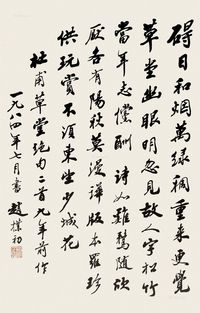 碍日和烟万绿稠重来更觉
草堂幽眼明忽见故人字松竹
当年志傥酬 诗如难驁随欣
厌名有阳秋莫漫评版本罗珍
供玩赏不须东坐少城花
杜甫草堂绝句二首九年前作
一九八四年七月书 赵朴初